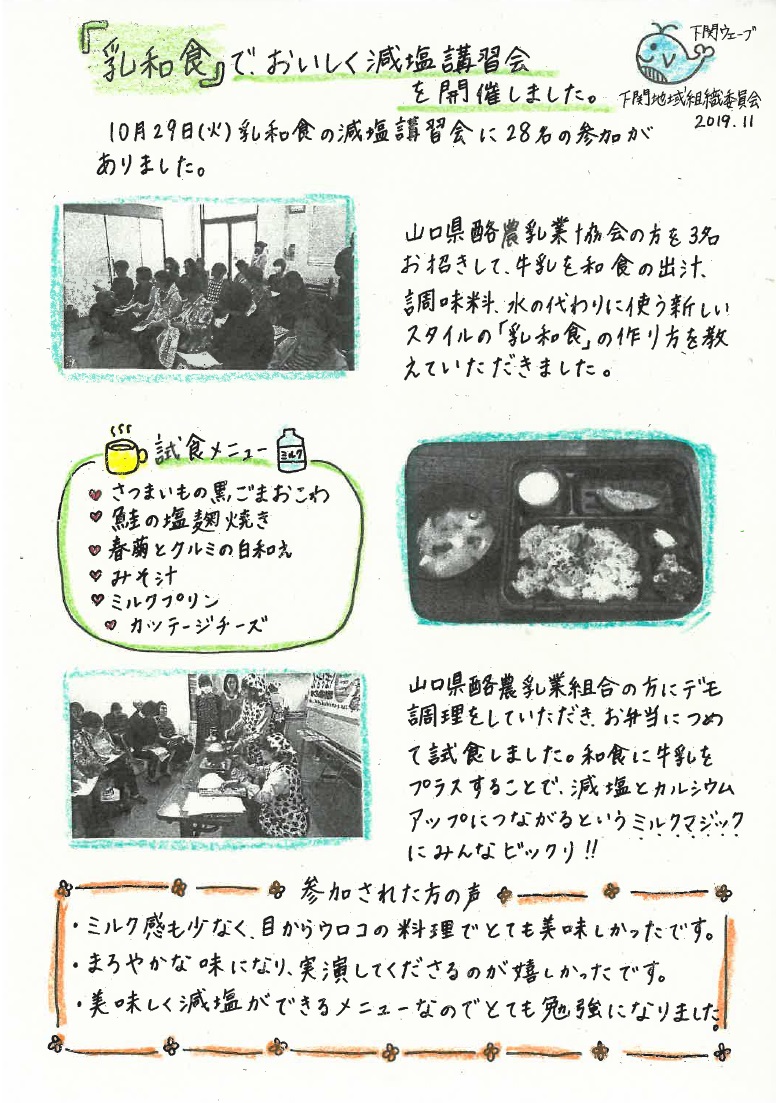 『乳和食』で、おいしく減塩講習会
を開催しました。
下関ウェーブ
下関地域組織委員会
2019.11
10月29日(火)乳和食の減塩講習会に28名の参加が
ありました。
山口県酪農乳業協会の方を3名
お招きして、牛乳を和食の出汁、
調味料、水の代わりに使う新しい
スタイルの「乳和食」の作り方を教
えていただきました。
試食メニュー
ミルク
さつまいもの黒ごまおこわ
鮭の塩麹焼き
春菊とクルミの白和え
みそ汁
ミルクプリン
カッテージチーズ
山口県酪農乳業組合の方にデモ
調理をしていただき、お弁当につめ
て試食しました。和食に牛乳を
プラスすることで、減塩とカルシウム
アップにつながるというミルクマジック
にみんなビックリ!!
参加された方の声
・ミルク感も少なく、目からウロコの料理でとても美味しかったです。
・まろやかな味になり、実演してくださるのが嬉しかったです。
・美味しく減塩ができるメニューなのでとても勉強になりました。